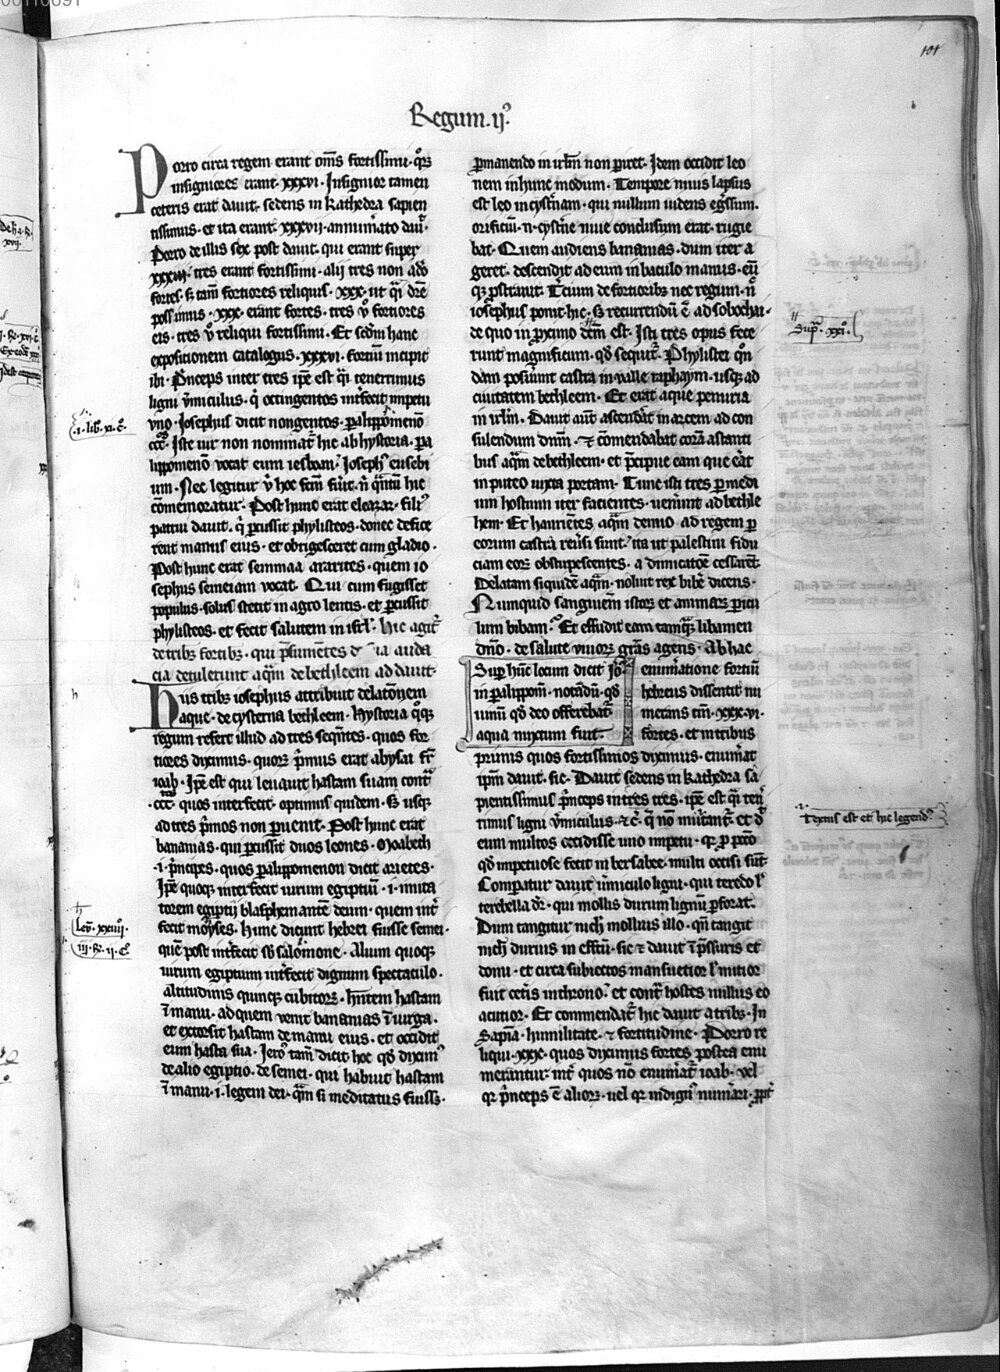 101
Regum .ij.
Porro circa regem erant om̅s fortissimi. quorum
insigniores erant .xxxvi. Insignior tamen
ceteris erat dauit. sedens in kathedra sapien
tissimus. et ita erant .xxxvii. annumerato dauid
Porro de illis sex post dauit. qui erant super
xxxiii. tres erant fortissimi. alii tres non adeo
fortes. s; tam̅ fortiores reliquis .xxx. ut q̅i dr̅e
possimus .xxx. erant fortes. tres v̊ fortiores
eis. tres v̊ reliqui fortissimi. Et scd̅m hanc
expositionem catalogus .xxxvi. fortiu̅ incipit
ibi. Pr̅nceps inter tres ip̅e est q̅i tenerrimus
ligni v̅miculus. q̇ octingentos int̅fecit impetu
vno. Josephus dicit nongentos. paralippomeno̅
ccc. Iste uir non nominat̅ hic ab hystoria. pa
lippomeno̅ vocat eum iesboam. Joseph̅ eusebi
um. Nec legitur v̊ hoc fem̅ fu̅it. n̅ qu̅tu̅ hic
co̅memoratur. Post hunc erat eleazar. fili᷒
patrui dauit. q̇ p̅cussit phylisteos. donec defice
rent manus eius. et obrigesceret cum gladio.
Post hunc erat semmaa ararites. quem io
sephus semeiam vocat. Qui cum fugisset
populus. solus stetit in agro lentis. et p̅cussit
phylisteos. et fecit salutem in isrl̅. hic agit̅
de trib; fortib;. qui p̅su̅meres d ia auda
cia detulerunt aqua̅ de bethleem ad dauit.
Hus trib; iosephus attribuit delato̅nem
aque. de cysterna bethleem. hystoria q̊q;
regum refert illud ad tres seq̅ntes. quos for
tiores diximus. quor; p̅mus erat abysai fr̅
ioab. Ip̅e est qui leuauit hastam suam contr̅
.ccc. quos interfecit. optimus quidem. s; usq;
ad tres p̅mos non p̅uenit. Post hunc erat
bananias. qui p̅cussit duos leones. Moabech
.i. p̅ncipes. quos paralippomenon dicit arietes.
Ip̅e quoq; interfecit uirum egiptiu̅ .i. imita
torem egiptij blasphemante̅ deum. quem int̅
fecit moyses. Hunc dicunt hebrei fuisse semei.
que̅ post int̅fecit s; salomone. Alium quoq;
uirum egiptium int̅fecit dignum spectaculo.
altitudinis quinq; cubitor;. habentem hastam
i̅ manu. ad quem venit bananias i̅ uirga.
et extorsit hastam de manu eius. et occidit
eum hasta sua. Jero᷒ tam̅ dicit hoc qd̅ dixim᷒
de alio egiptio. de semei. qui habuit hastam
i̅ manu .i. legem dei. qua̅ si meditatus fuiss;.
p̅manendo in irl̅m non p̅iret. Idem occidit leo
nem in hunc modum. Tempore niuis lapsus
est leo in cyst̅nam. qui nullum uidens eg̅ssum.
orificiu̅. n. cyst̅ne niue conclusum erat. rugie
bat. Quem audiens bananias. dum iter a
geret. descendit ad eum in baculo manus. eu̅
q; p̅strauit. T̅cium de fortiorib; nec regum. n̅
iosephus ponit hic. s; recurrendu̅ e̅ ad sobochai.
de quo in p̅ximo dictu̅ est. Isti tres opus fece
runt magnificum. qd̅ sequit̅. Phylistei qu̅
dam posuerunt castra in ualle raphaym. usq; ad
ciuitatem bethleem. Et erat aque penuria
in irl̅m. Dauit aut̅ ascendit in arcem ad con
sulendum dnm̅. ⁊ co̅mendabat cora̅ astanti
bus aqua̅ de bethleem. et p̅cipue eam que e̅at
in puteo iuxta portam. Tunc isti tres p̅ medi
um hostium iter facientes. uen̅unt ad bethle
hem. Et haurientes aqua̅ denuo ad regem p̅
eorum castra reu̅si sunt. ita ut palestini fidu
ciam eor; obstupescentes. a dimicato̅e cessare̅t.
Delatam siquide̅ aqua̅. noluit rex bibe̅ dicens.
Numquid sanguinem istor; et animar; p̅icu
lum bibam. Et effudit eam tamq; libamen
dn̅o. de salute viuor; gra̅s agens. Ab hac
Sup̅ hu̅c locum dicit Jo̅
in paralippom̅. notadu̅. qd̅
uinu̅ qd̅ deo offerebat̅
aqua mixtum fuit.
enumeratione fortiu̅
hebreus dissentit nu
merans tm̅. xxx.vi.
fortes. et in tribus
primis quos fortissimos diximus. enum̅at
ip̅m dauit. sic. Dauit sedens in kathedra sa
pientissimus p̅nceps int̅ tres. ip̅e est q̅i ten̅
rimus ligni v̅miculus. ⁊c̅. q̇ no̅ mutant̅. et d̅
eum multos cecidisse uno impetu. q; p̅ pcco̅
qd̅ impetuose fecit in bersabee. multi occisi su̅t
Comparatur dauit v̅miculo ligni. qui teredo l̅
terebella dr̅. qui mollis durum lignu̅ p̅forat.
Dum tangitur nich̅ mollius illo. qu̅ tangit
nich̅ durius in effectu̅. sic ⁊ dauit i̅ p̅ssuris et
domi. et circa subiectos mansuetior l̅ mitior
fuit cet̅is in throno. et cont̅ hostes nullus eo
acutior. Et commendat̅ hic dauit a trib;. In
sapia̅. humilitate. ⁊ fortitudine. Porro re
liqui .xxx. quos diximus fortes postea enu
merantur. int̅ quos no̅ enum̅at̅ ioab. vel
q; p̅nceps e̅ alior;. uel q; indign᷒ num̅ari. ppt̅
.i. lib̅. xi. c̅.
Leu̅. xxiiii.
iii. R̅. ij. c̅.
Sup̅. xxi.
Textus est et hic legend᷒